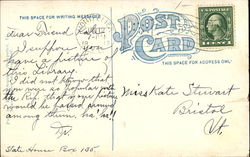 THIS SPACE FOR WRITING MESSAGES
POST
CARD
THIS SPACE FOR ADDRESS ONLY
Dear Friend Kate
I suppose you
have a picture of
this Library.
I did not know that
you were so popular with
the R.R. that your picture
would be passed around
among them, ha "ha"
Miss Kate Stewart
Bristol
Vt.
State House Box 195.